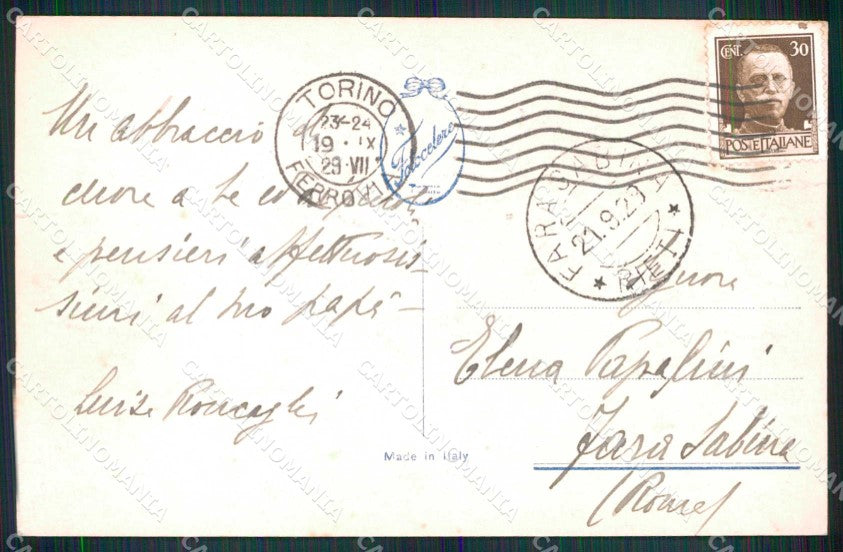 Un abbraccio di
cuore a te
e pensieri affettuosis-
simi al tuo papà -
Luisa Roncaglii
TORINO
23-24
19 · IX
29·VII
FERROVIA
Fotocelere
CENT. 30
POSTE ITALIANE
FARA SABINA
21.9.29
RIETI
Elena Papalini
Fara Sabina
(Roma)
Made in Italy
CARTOLINOMANIA